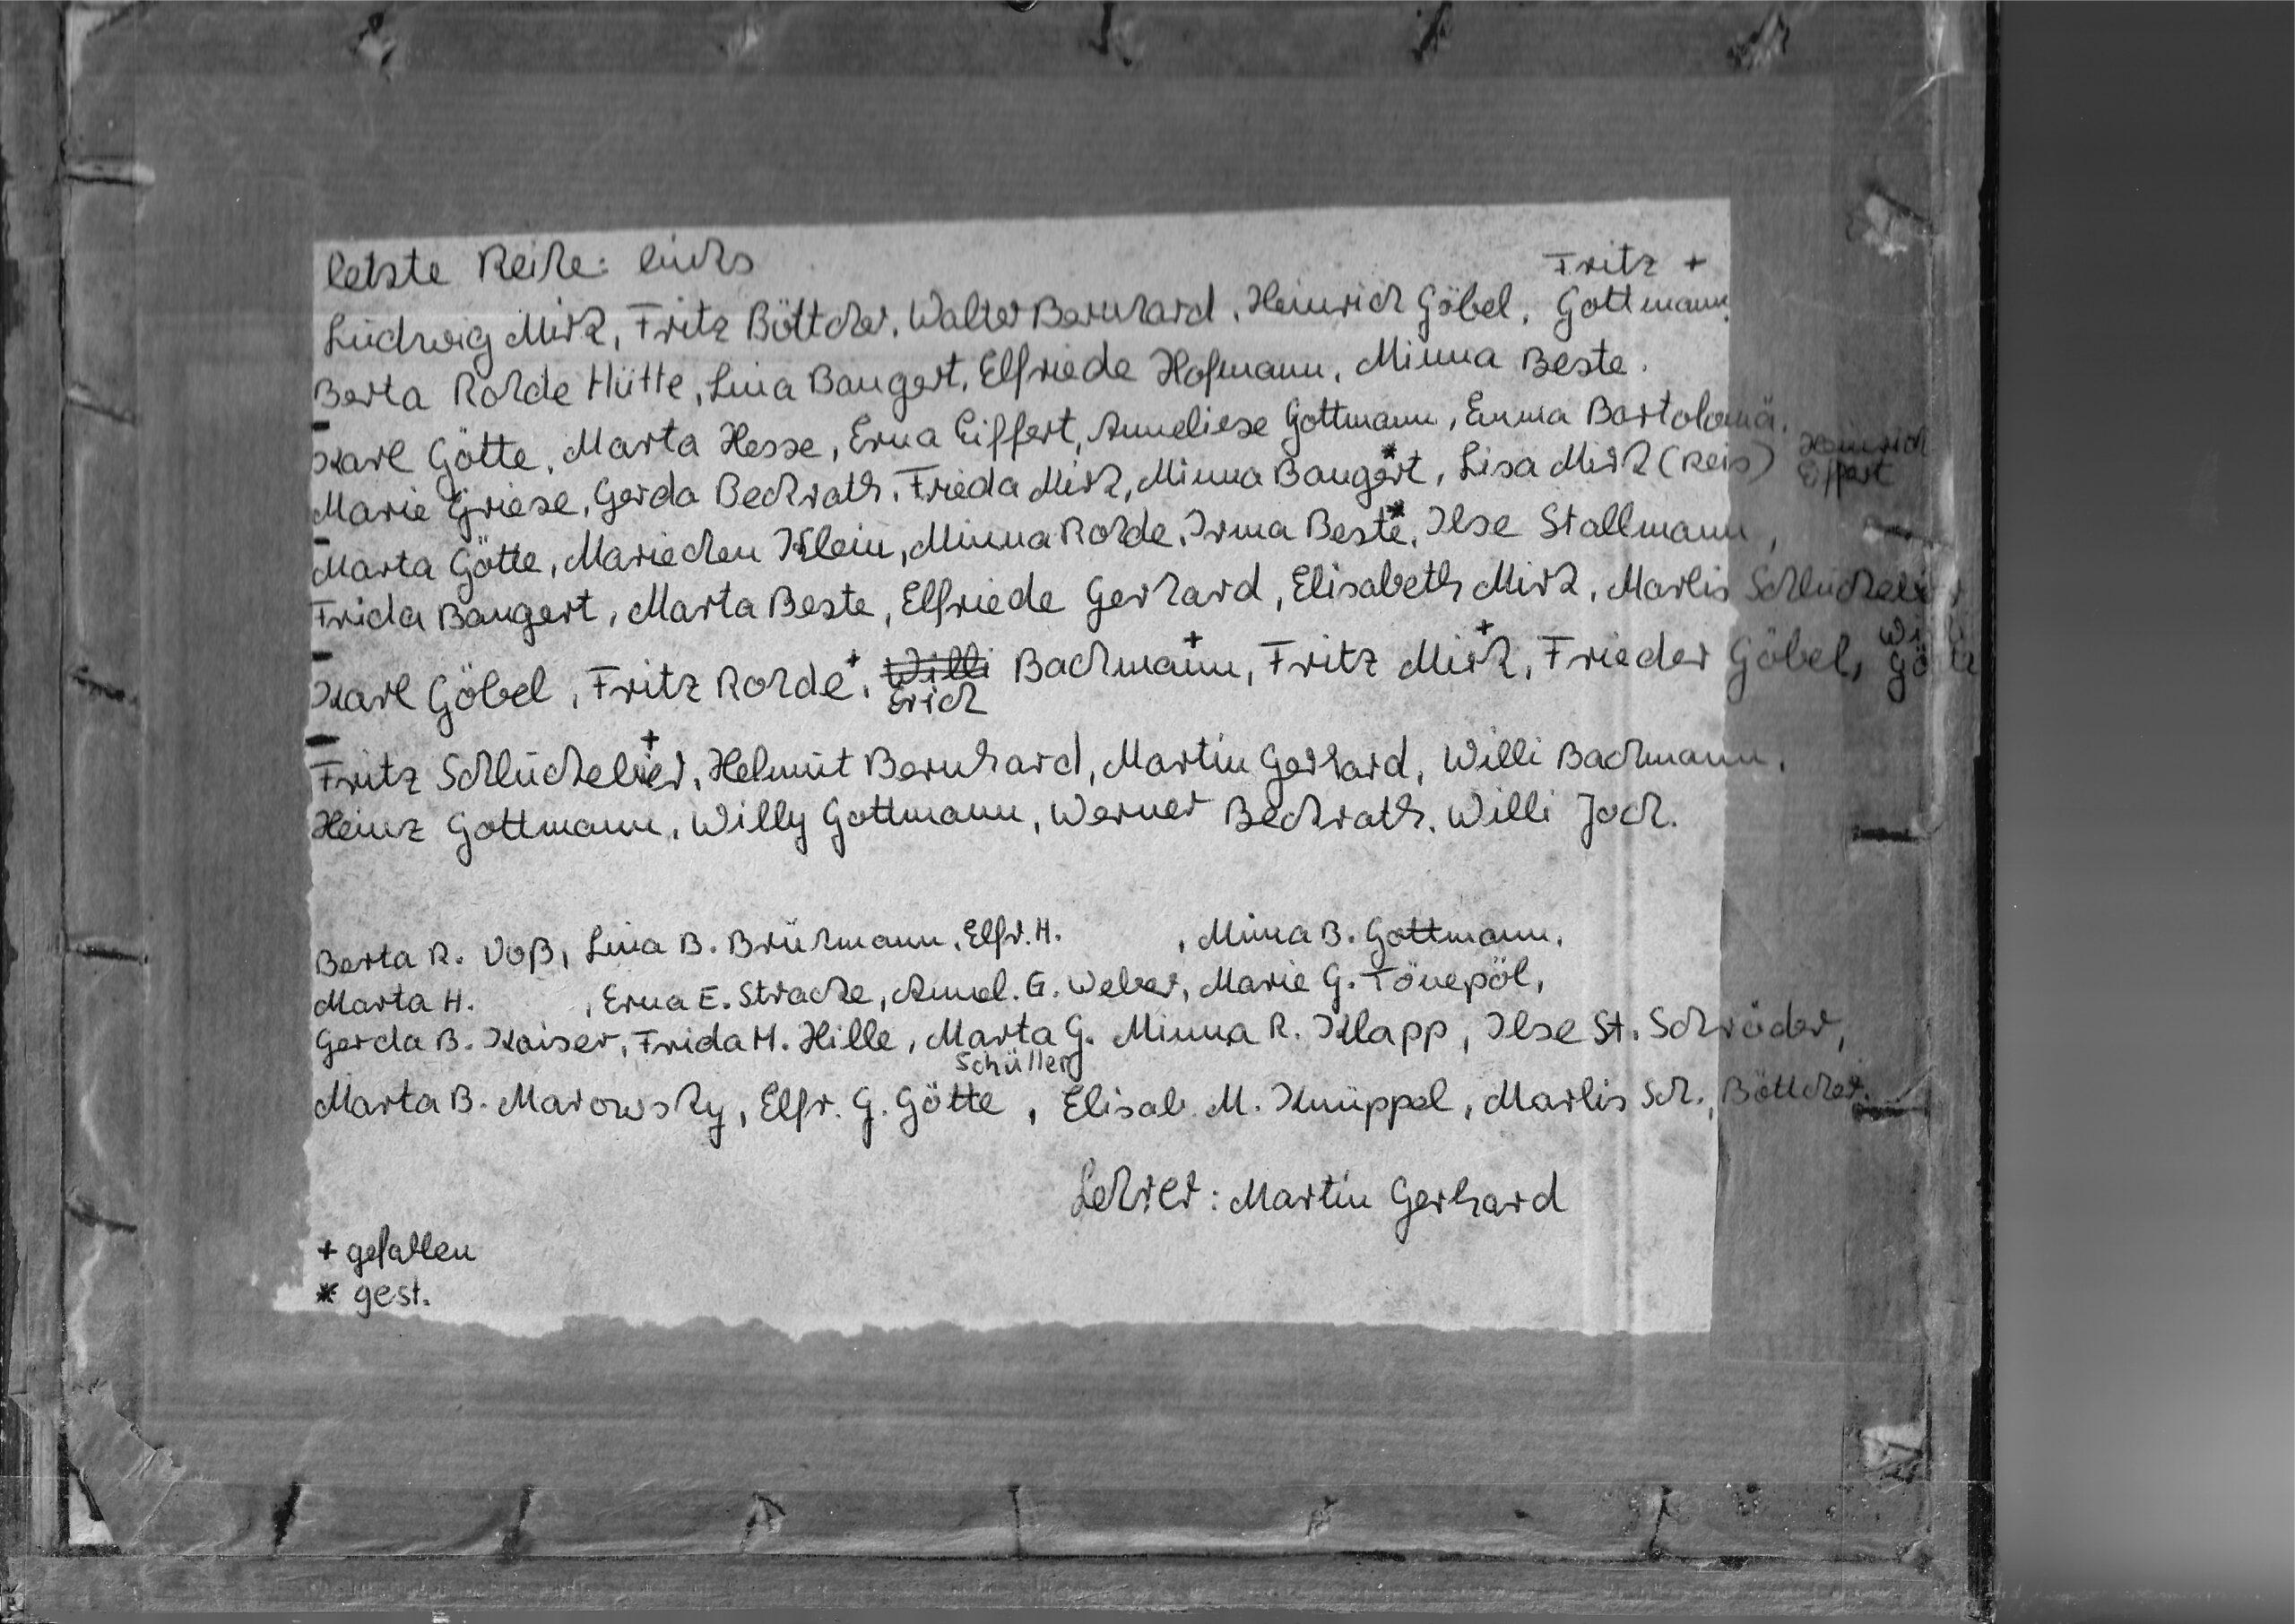 letzte Reihe: links
Ludwig Mirk, Fritz Böttcher, Walter Bernhard, Heinrich Göbel, Fritz + Gottmann,
Berta Rohde Hütte, Lina Bangert, Elfriede Hofmann, Minna Beste.
Karl Götte, Marta Hesse, Erna Eiffert, Anneliese Gottmann, Emma Bartolomä.
Marie Griese, Gerda Beckrath, Frieda Mirk, Minna Bangert*, Lisa Mirk (Reis) Heinrich Eiffert
Marta Götte, Mariechen Klein, Minna Rohde, Irma Beste*, Ilse Stallmann,
Frida Bangert, Marta Beste, Elfriede Gerhard, Elisabeth Mirk, Marlis Schluckebier
Karl Göbel, Fritz Rohde+, Willi Erich Bachmann+, Fritz Mirk+, Frieder Göbel, Willi Götte
Fritz Schluckebier+, Helmut Bernhard, Martin Gerhard, Willi Bachmann,
Heinz Gottmann, Willy Gottmann, Werner Beckrath, Willi Joch.
Berta R. Voß, Lina B. Brühmann, Elfr. H. , Minna B. Gottmann,
Marta H. , Erna E. Stracke, Annel. G. Weber, Marie G. Tönepöl,
Gerda B. Kaiser, Frida M. Hille, Marta G. Schüller, Minna R. Klapp, Ilse St. Schröder,
Marta B. Marowsky, Elfr. G. Götte, Elisab. M. Knüppel, Marlis Sch., Böttcher.
Lehrer: Martin Gerhard
+ gefallen
* gest.